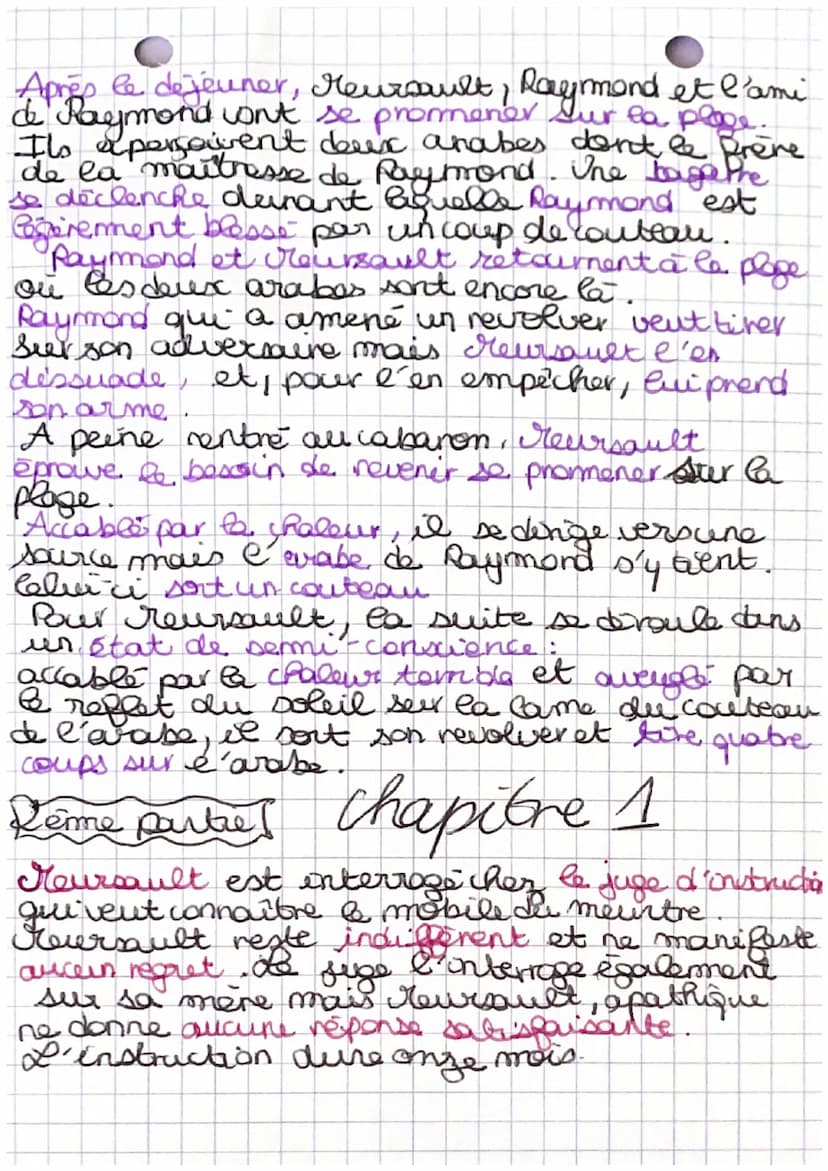 Après le déjeuner, Meursault, Raymond et l'ami
de Raymond vont se promener sur la plage.
Ils aperçoivent deux arabes dont le frère
de la maîtresse de Raymond. Une bagarre
se déclenche durant laquelle Raymond est
légèrement blessé par un coup de couteau.
Raymond et Meursault retournent à la plage
où les deux arabes sont encore là.
Raymond qui a amené un revolver veut tirer
sur son adversaire mais Meursault l'en
dissuade, et, pour l'en empêcher, lui prend
son arme.
A peine rentré au cabanon, Meursault
éprouve le besoin de revenir se promener sur la
plage.
Accablé par la chaleur, il se dirige vers une
source mais l'arabe de Raymond s'y tient.
Celui-ci sort un couteau
Pour Meursault, la suite se déroule dans
un état de semi-conscience :
accablé par la chaleur terrible et aveuglé par
le reflet du soleil sur la lame du couteau
de l'arabe, il sort son revolver et tire quatre
coups sur l'arabe.
2ème partie chapitre 1
Meursault est interrogé chez le juge d'instruction
qui veut connaître le mobile du meurtre.
Meursault reste indifférent et ne manifeste
aucun regret. Le juge l'interroge également
sur sa mère mais Meursault, apathique
ne donne aucune réponse satisfaisante.
L'instruction dure onze mois.